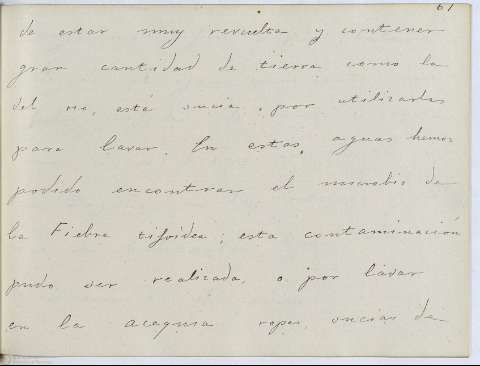 61
de estar muy revuelta y contener
gran cantidad de tierra como la
del rio, está sucia, por utilizarlas
para lavar. En estas, aguas hemos
podido encontrar el microbio de
la Fiebre tifoidea; esta contaminación
pudo ser realizada, o por lavar
en la acequia ropas, sucias de